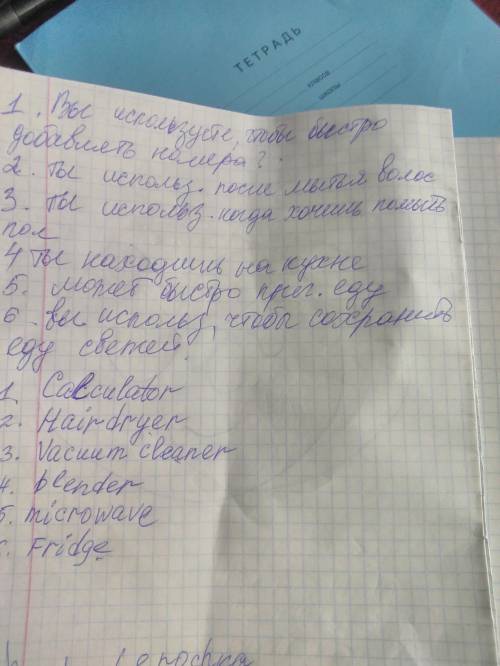 ТЕТРАДЬ
КЛАССОВ
ШКОЛЫ
1. Вы используете, чтобы быстро
добавлять номера?
2. Ты использ. после мытья волос
3. Ты использ. когда хочешь помыть
пол
4 Ты находишь на кухне
5. может быстро приг. еду
6. вы использ, чтобы сохранить
еду свежей.
1. Calculator
2. Hairdryer
3. Vacuum cleaner
4. blender
5. microwave
6. Fridge